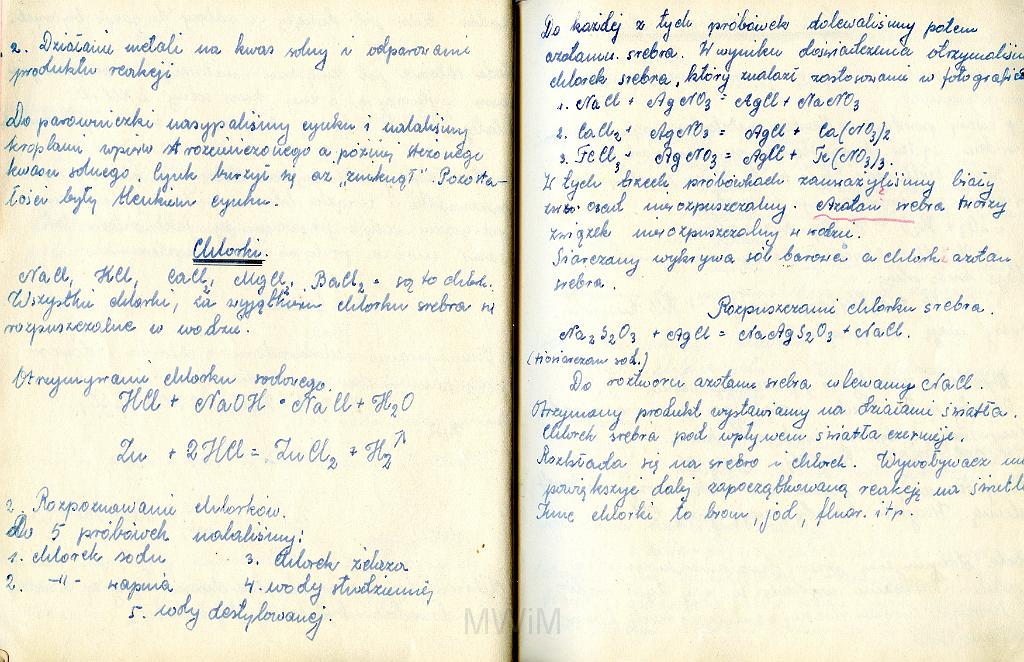 2. Działanie metali na kwas solny i odparowanie
produktu reakcji
Do parowniczki nasypaliśmy cynku i nalaliśmy
kroplami wpierw rozcieńczonego a później stężonego
kwasu solnego. Cynk burzył się aż "zniknął". Pozosta-
łości były tlenkiem cynku.
Chlorki.
NaCl, HCl, CaCl2, MgCl2, BaCl2 - są to chlorki.
Wszystkie chlorki, za wyjątkiem chlorku srebra są
rozpuszczalne w wodzie.
Otrzymywanie chlorku sodowego.
HCl + NaOH = NaCl + H2O
Zn + 2HCl = ZnCl2 + H2↑
2. Rozpoznawanie chlorków.
Do 5 próbówek nalaliśmy:
1. chlorek sodu 3. chlorek żelaza
2. -"- wapnia 4. wody studziennej
5. wody destylowanej.
Do każdej z tych próbówek dolewaliśmy potem
azotanu srebra. W wyniku doświadczenia otrzymaliśm
chlorek srebra, który znalazł zastosowanie w fotografice
1. NaCl + AgNO3 = AgCl + NaNO3
2. CaCl2 + AgNO3 = AgCl + Ca(NO3)2
3. FeCl3 + AgNO3 = AgCl + Fe(NO3)3.
W tych trzech próbówkach zauważyliśmy biały
osad nierozpuszczalny. Azotan srebra tworzy
związek nierozpuszczalny w wodzie.
Siarczany wykrywa sól barowa a chlorki azotan
srebra.
Rozpuszczanie chlorku srebra.
Na2S2O3 + AgCl = NaAgS2O3 + NaCl.
(tiosiarczan sod.)
Do roztworu azotanu srebra wlewamy NaCl.
Otrzymany produkt wystawiamy na działanie światła.
Chlorek srebra pod wpływem światła czernieje.
Rozkłada się na srebro i chlorek. Wywoływacz ma
powiększyć dalej zapoczątkowaną reakcję na świetle
Inne chlorki to brom, jod, fluor. itp.
MWiM